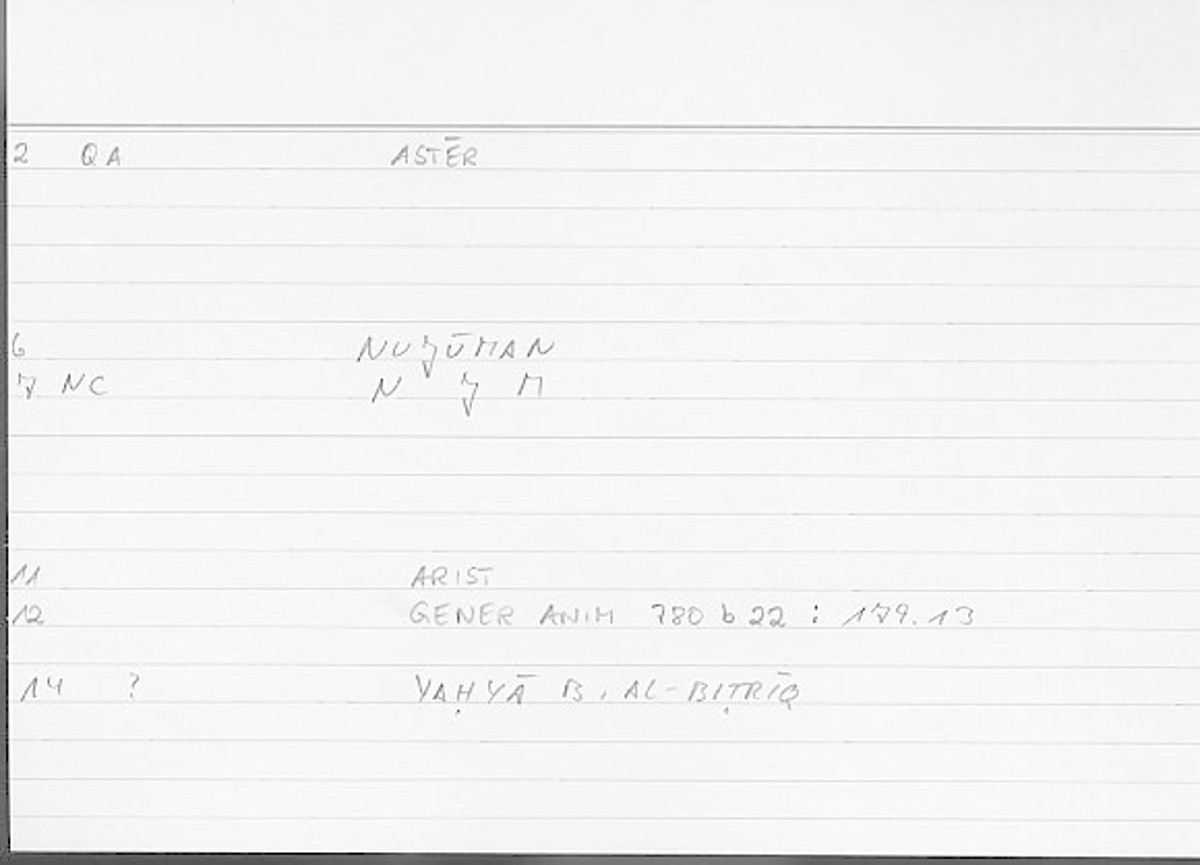 2 QA ASTĒR
6 NUǧŪMAN
7 NC N ǧ M
11 ARIST
12 GENER ANIM 780 b 22 : 179.13
14 ? YAḤYĀ B. AL-BIṬRĪQ